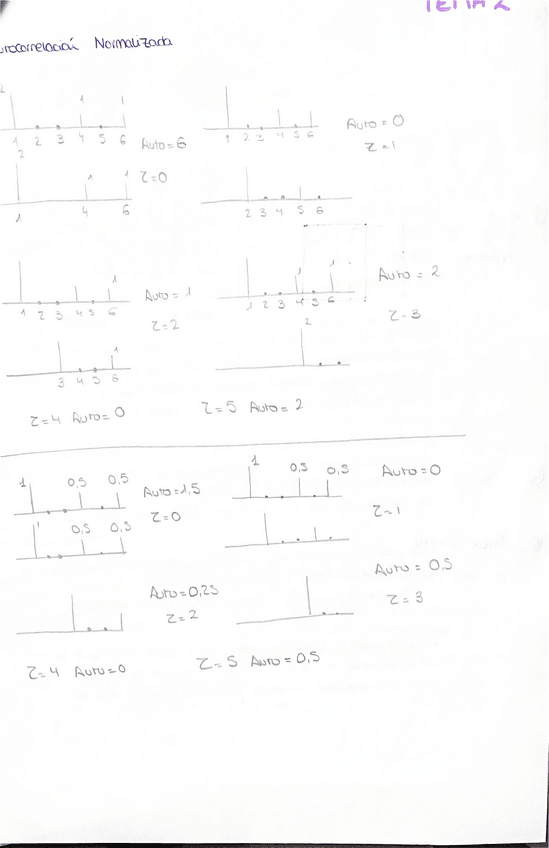 TEMA 2
urocorrelación Normalizada
2
1 1
1 2 3 4 5 6
Auto = 6
Z=0
2
1 1
1 4 6
1 2 3 4 5 6
Auto = 0
Z=1
2 3 4 5 6
1
1 2 3 4 5 6
Auto = 1
Z=2
1
3 4 5 6
1 1
1 2 3 4 5 6
Auto = 2
Z=3
2
Z=4 Auto=0
Z=5 Auto=2
1 0,5 0,5
Auto=1,5
Z=0
1 0,5 0,5
1 0,5 0,5
Auto=0
Z=1
Auto=0,25
Z=2
Auto=0,5
Z=3
Z=4 Auto=0
Z=5 Auto=0,5